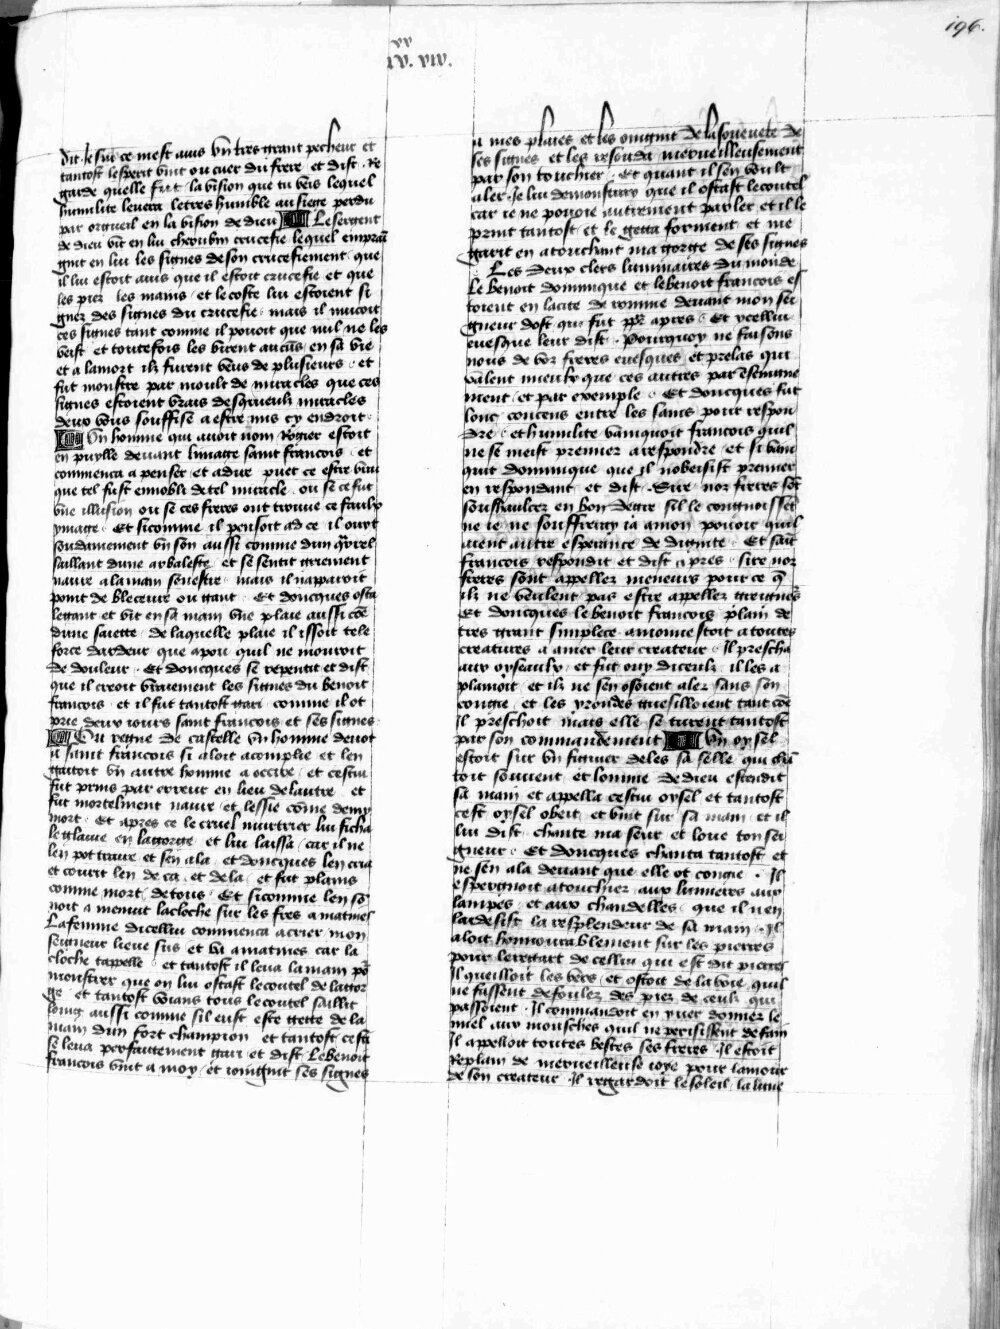 196.
xx
iv. xiv.
dit. Je suy ce mest auis vn tres grant pecheur et
tantost lesperit vint ou cuer du frere et dist. Re
garde quelle fut la vision que tu veis lequel
humilite leuera le tres humble au siege perdu
par orgueil en la vision de dieu Le sergent
de dieu vit en lui cherubin crucefie lequel emprai
gnit en lui les signes de son crucefiement que
il lui estoit auis que il estoit crucefie et que
les piez les mains et le coste lui estoient si
gnez des signes du crucefie. mais il mucoit
ces signes tant comme il pouoit que nul ne les
veist et toutefois les virent aucuns en sa vie
et a la mort ilz furent veus de plusieurs. et
fut monstre par moult de miracles que ces
signes estoient vrais desquelz miracles
deux vous souffise a estre mis cy endroit.
Un homme qui auoit nom Rogier estoit
en puylle deuant lymage saint francois. et
commenca a penser et a dire puet ce estre vray
que tel fust ennobli de tel miracle. ou se ce fut
vne illusion ou se ces freres ont trouue ce faulx
ymage. Et sicomme il pensoit ad ce il ouyt
soudainement vn son aussi comme dun qrrel
saillant dune arbaleste et se sentit griement
naure a la main senestre. mais il napparoit
point de bleceure ou gant. Et doncques osta
le gant et vit en sa main vne plaie aussi come
dune saiette. de laquelle plaie il issoit tele
force dardeur que a pou quil ne mouroit
de douleur. Et doncques se repentit et dist
que il creoit vraiement les signes du benoit
francois. et il fut tantost gari comme il ot
prie deux iours saint francois et ses signes.
Ou regne de castelle vn homme deuot
a saint francois si aloit a complie et len
gaitoit vn autre homme a occire. et cestui
fut prins par erreur en lieu de lautre. et
fut mortelment naure et lessie come demy
mort. Et apres ce le cruel murtrier lui ficha
le glaiue en la gorge et lui laissa. car il ne
len pot traire et sen ala. et doncques len cria
et courut len de ca et de la et fut plains
comme mort de tous. Et sicomme len so
noit a menuit la cloche sur les fres a matines
La femme dicellui commenca a crier mon
seigneur lieue sus et va a matines car la
cloche tappelle. et tantost il leua la main po
monstrer que on lui ostast le coutel de la gor
ge et tantost voians tous le coutel saillit
loing aussi comme sil eust este gette de la
main dun fort champion. et tantost cestui
se leua perfaitement gari et dist. Le benoit
francois vint a moy. et ioingnit ses signes
a mes plaies et les oingnit de la soueuete de
ses signes et les resouda merueilleusement
par son touchier. Et quant il sen voult
aler. Je lui demonstray que il ostast le coutel
car ie ne pouoie autrement parler et il le
print tantost et le getta forment et me
garit en atouchant ma gorge de ses signes
Les deux clers luminaires du monde
le benoit dominique et le benoit francois es
toient en la cite de romme deuant mon sei
gneur dost. qui fut ppe apres. Et ycellui
euesque leur dist. Pourquoy ne faisons
nous de voz freres euesques et prelas qui
valent mieulx que ces autres par enseigne
ment et par exemple. Et doncques fut
long contens entre les sains pour respon
dre. et humilite vainquoit francois quil
ne se meist premier a respondre et si vain
quit dominique que il nobeisist premier
en respondant et dist. Sire nor freres sot
soushaulcez en bon degre sil le congnoissent
ne ie ne souffreray ia a mon pouoir quil
aient autre esperance de dignite. Et sait
francois respondit et dist apres. sire nor
freres sont appellez meneurs pour ce q
ilz ne veulent pas estre appellez greigns
Et doncques le benoit francois plain de
tres grant simplece amonnestoit a toutes
creatures a amer leur createur. Il prescha
aux oyseaulx et fut ouy diceulx. il les a
planioit et ilz ne sen osoient aler sans son
congie. et les yrondes gresilloient tant come
il preschoit mais elle se turent tantost
par son commandement Un oysel
estoit sur vn figuier deles sa selle qui chan
toit souuent et lomme de dieu estendit
sa main et appella cestui oysel et tantost
cest oysel obeit et vint sur sa main et il
lui dist. chante ma seur et loue ton sei
gneur. Et doncques chanta tantost et
ne sen ala deuant que elle ot congie. Il
espergnoit a touchier aux lumieres aux
lampes et aux chandelles. que il nen
lardesist la resplendeur de sa main. Il
aloit honnourablement sur les pierres
pour le regart de cellui qui est dit pierre
Il queilloit les vers et ostoit de la voie quil
ne fussent defoulez des piez de ceulx qui
passoient. Il commandoit en yuer donner le
miel aux mousches quil ne perisissent de fain
Il appelloit toutes bestes ses freres. Il estoit
Replain de merueilleuse ioye pour lamour
de son createur. Il regardoit le soleil. la lune